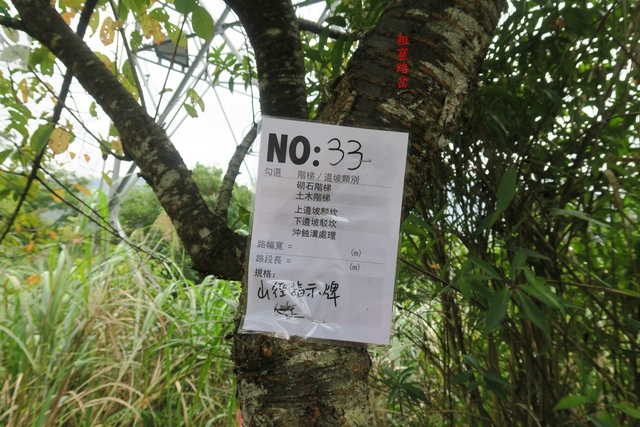 粗荒賂嵒
NO: 33
勾選 階梯 / 邊坡類別
砌石階梯
土木階梯
上邊坡駁坎
下邊坡駁坎
沖蝕溝處理
路幅寬 = (m)
路段長 = (m)
規格:
山徑指示牌